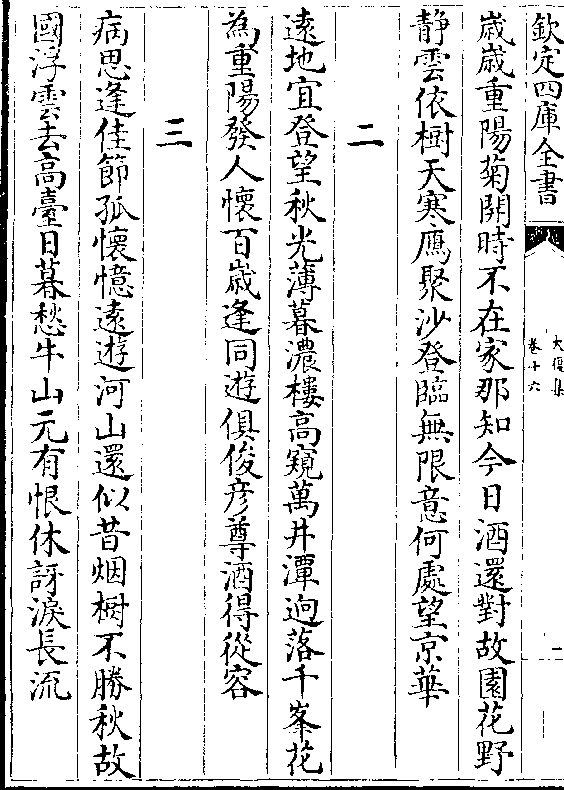 欽定四庫全書
大復集
卷十六
一
歲歲重陽菊開時不在家那知今日酒還對故園花野
静雲依樹天寒鴈聚沙登臨無限意何處望京華
二
遠地宜登望秋光薄暮濃樓高窺萬井潭迥落千峯花
為重陽發人懷百歲逢同遊俱俊彦尊酒得從容
三
病思逢佳節孤懷憶遠遊河山還似昔烟樹不勝秋故
國浮雲去高臺日暮愁牛山元有恨休訝淚長流